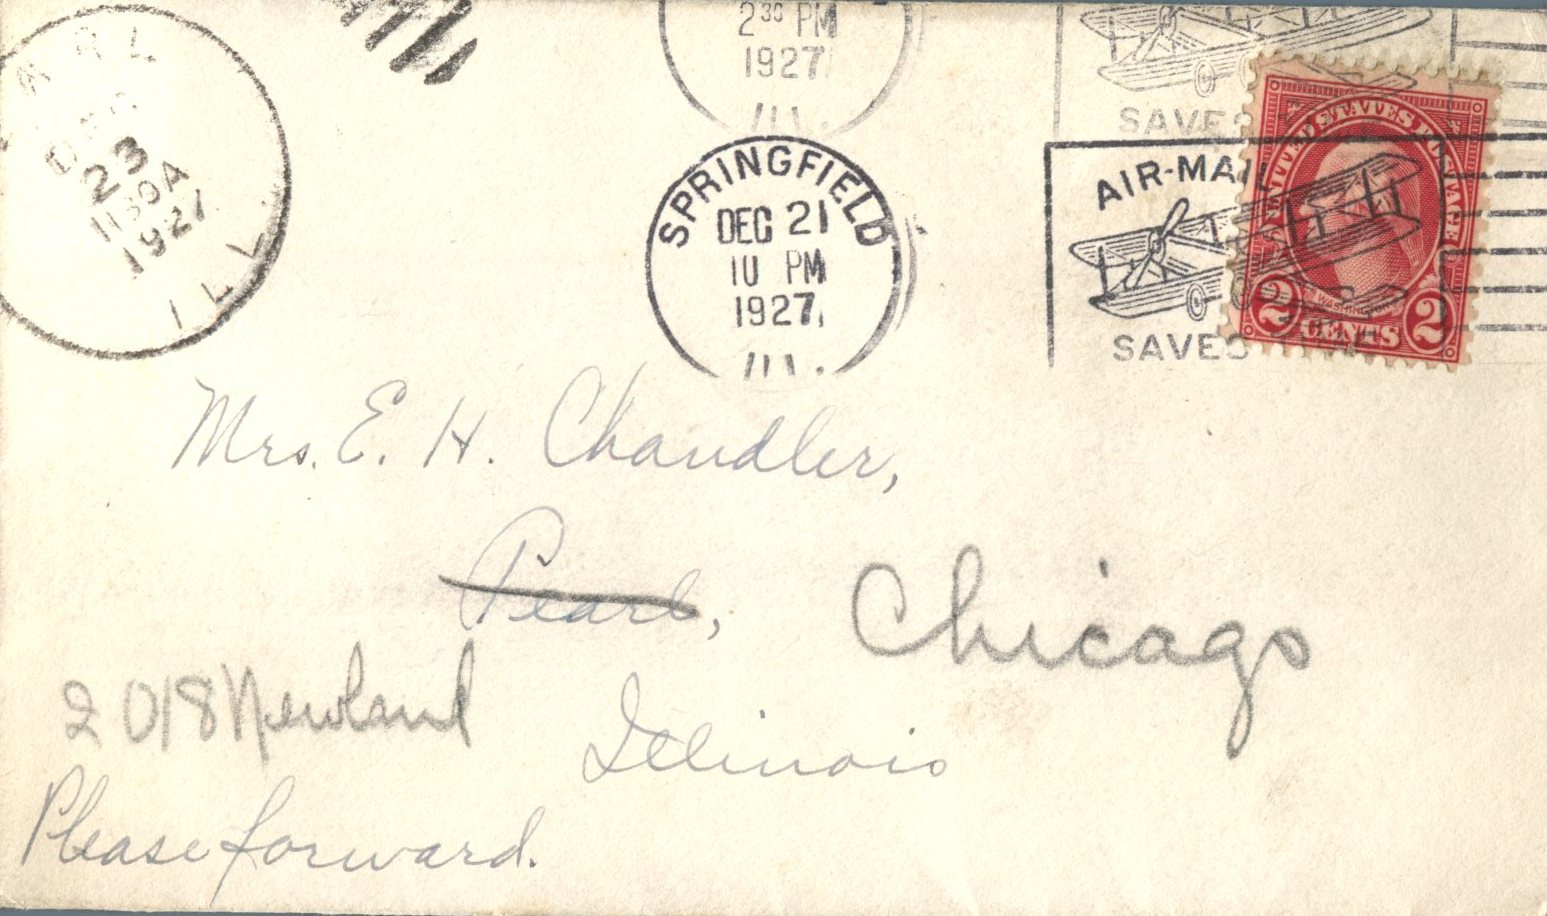 PEARL
DEC
23
1130A
1927
ILL.
2 30 PM
1927
ILL.
SAVES
SPRINGFIELD
DEC 21
10 PM
1927
ILL.
AIR-MAIL
SAVES
UNITED STATES POSTAGE
WASHINGTON
2 CENTS 2
Mrs. E. H. Chandler,
Pearl,
Chicago
2018 Newland
Illinois
Please forward.